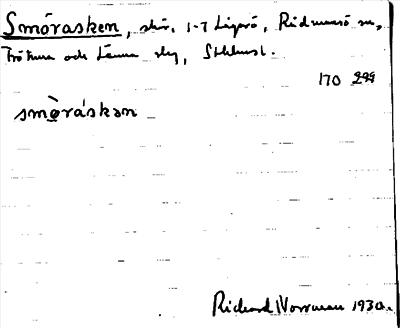 Smörasken, skär, 1-7 Ligerö, Rådmansö sn,
Frötuna och Länna slg, Sthlmsl.
170 299
smö̀ráskən
Richard Norrman 1930.